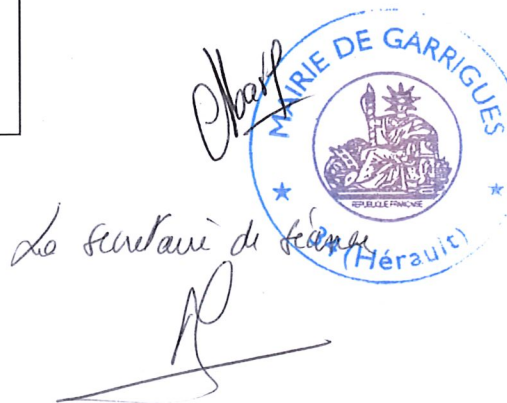 MAIRIE DE GARRIGUES
REPUBLIQUE FRANÇAISE
(Hérault)
Le secrétaire de séance